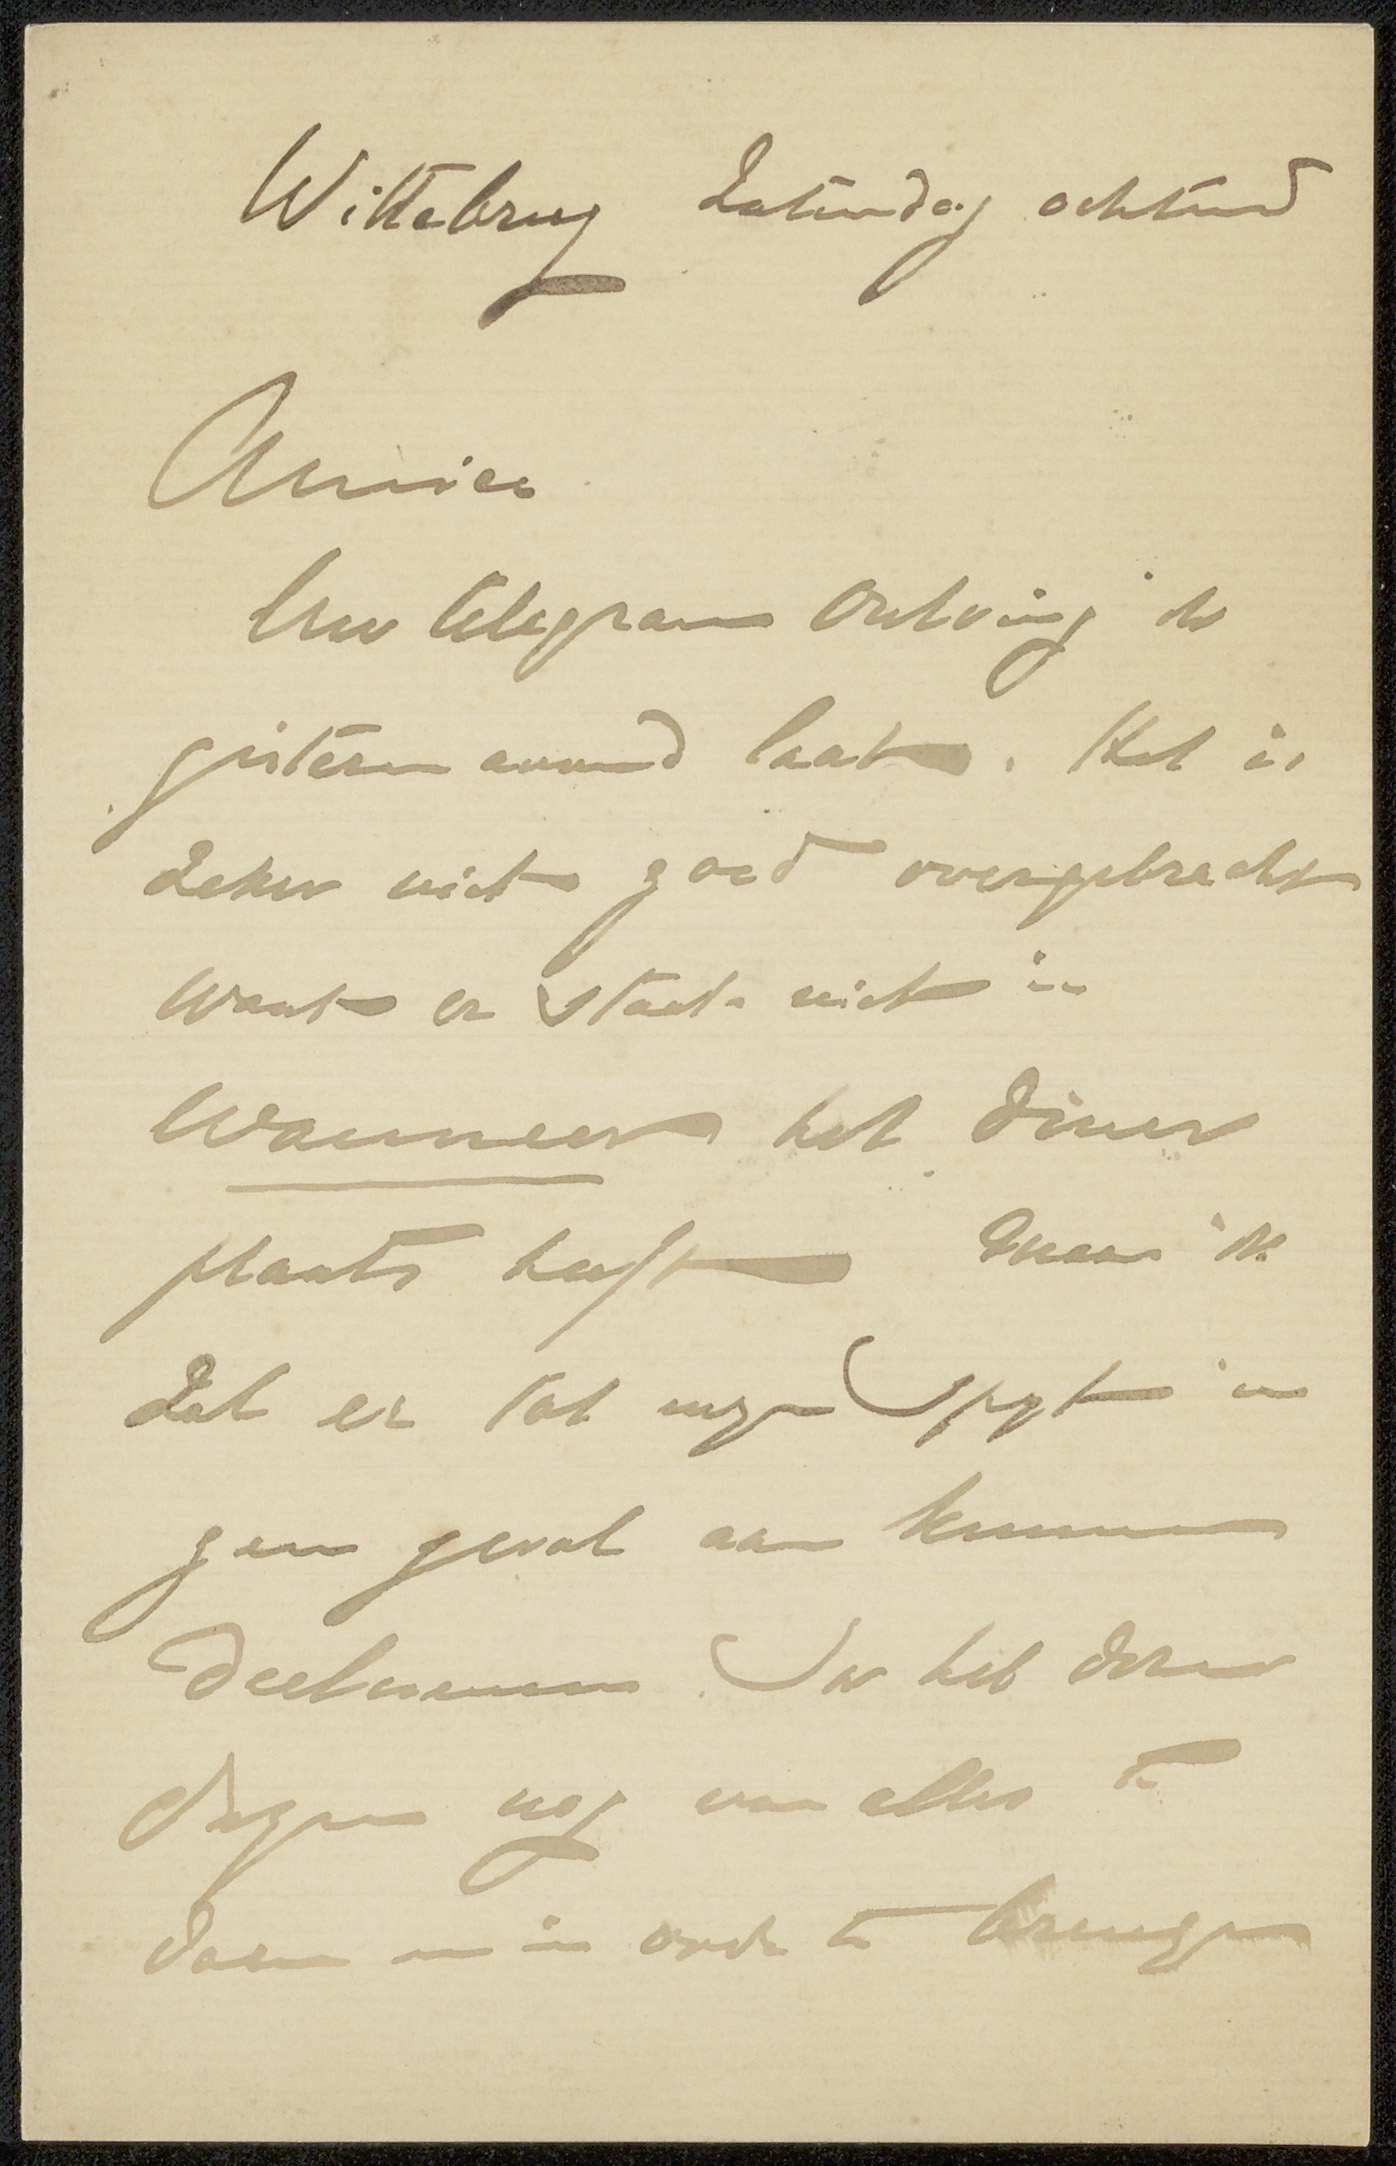 Wittebrug Zaturdag ochtend
Amice
Uw telegram ontving ik
gisteren avond laat. Het is
zeker niet goed overgebracht
want er staat niet in
wanneer het diner
plaats heeft maar ik
zal er tot mijn spijt in
geen geval aan kunnen
deelnemen. Ik heb dezer
dagen nog van alles te
doen en in orde te brengen